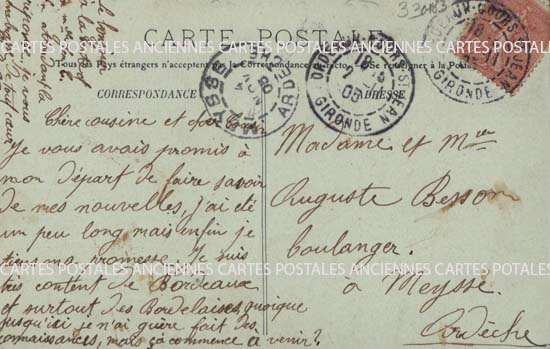 33063
CARTE POSTALE
Tous les pays étrangers n'acceptent pas la Correspondance au recto. Se renseigner à la Poste
CORRESPONDANCE
ADRESSE
MEYSSE
ARDÈCHE
BORDEAUX-COURS-ST-JEAN
GIRONDE
BORDEAUX-COURS-ST-JEAN
GIRONDE
Chère cousine et cher Cousin
Je vous avais promis à
mon départ de faire savoir
de mes nouvelles, j'ai été
un peu long mais enfin je
tiens ma promesse. Je suis
très content de Bordeaux
et surtout des Bordelaises, quoique
jusqu'ici je n'ai guère fait des
connaissances, mais ça commence à venir.
Madame et Mr
Auguste Besson
boulanger.
à Meysse
Ardèche
réponse. Je vous
de tout cœur
ANCIENNES CARTES POSTALES ANCIENNES CARTES POSTALES ANCIENNES CARTES POSTALES
CARTES POSTALES ANCIENNES CARTES POSTALES ANCIENNES CARTES POSTALES ANCIENNES